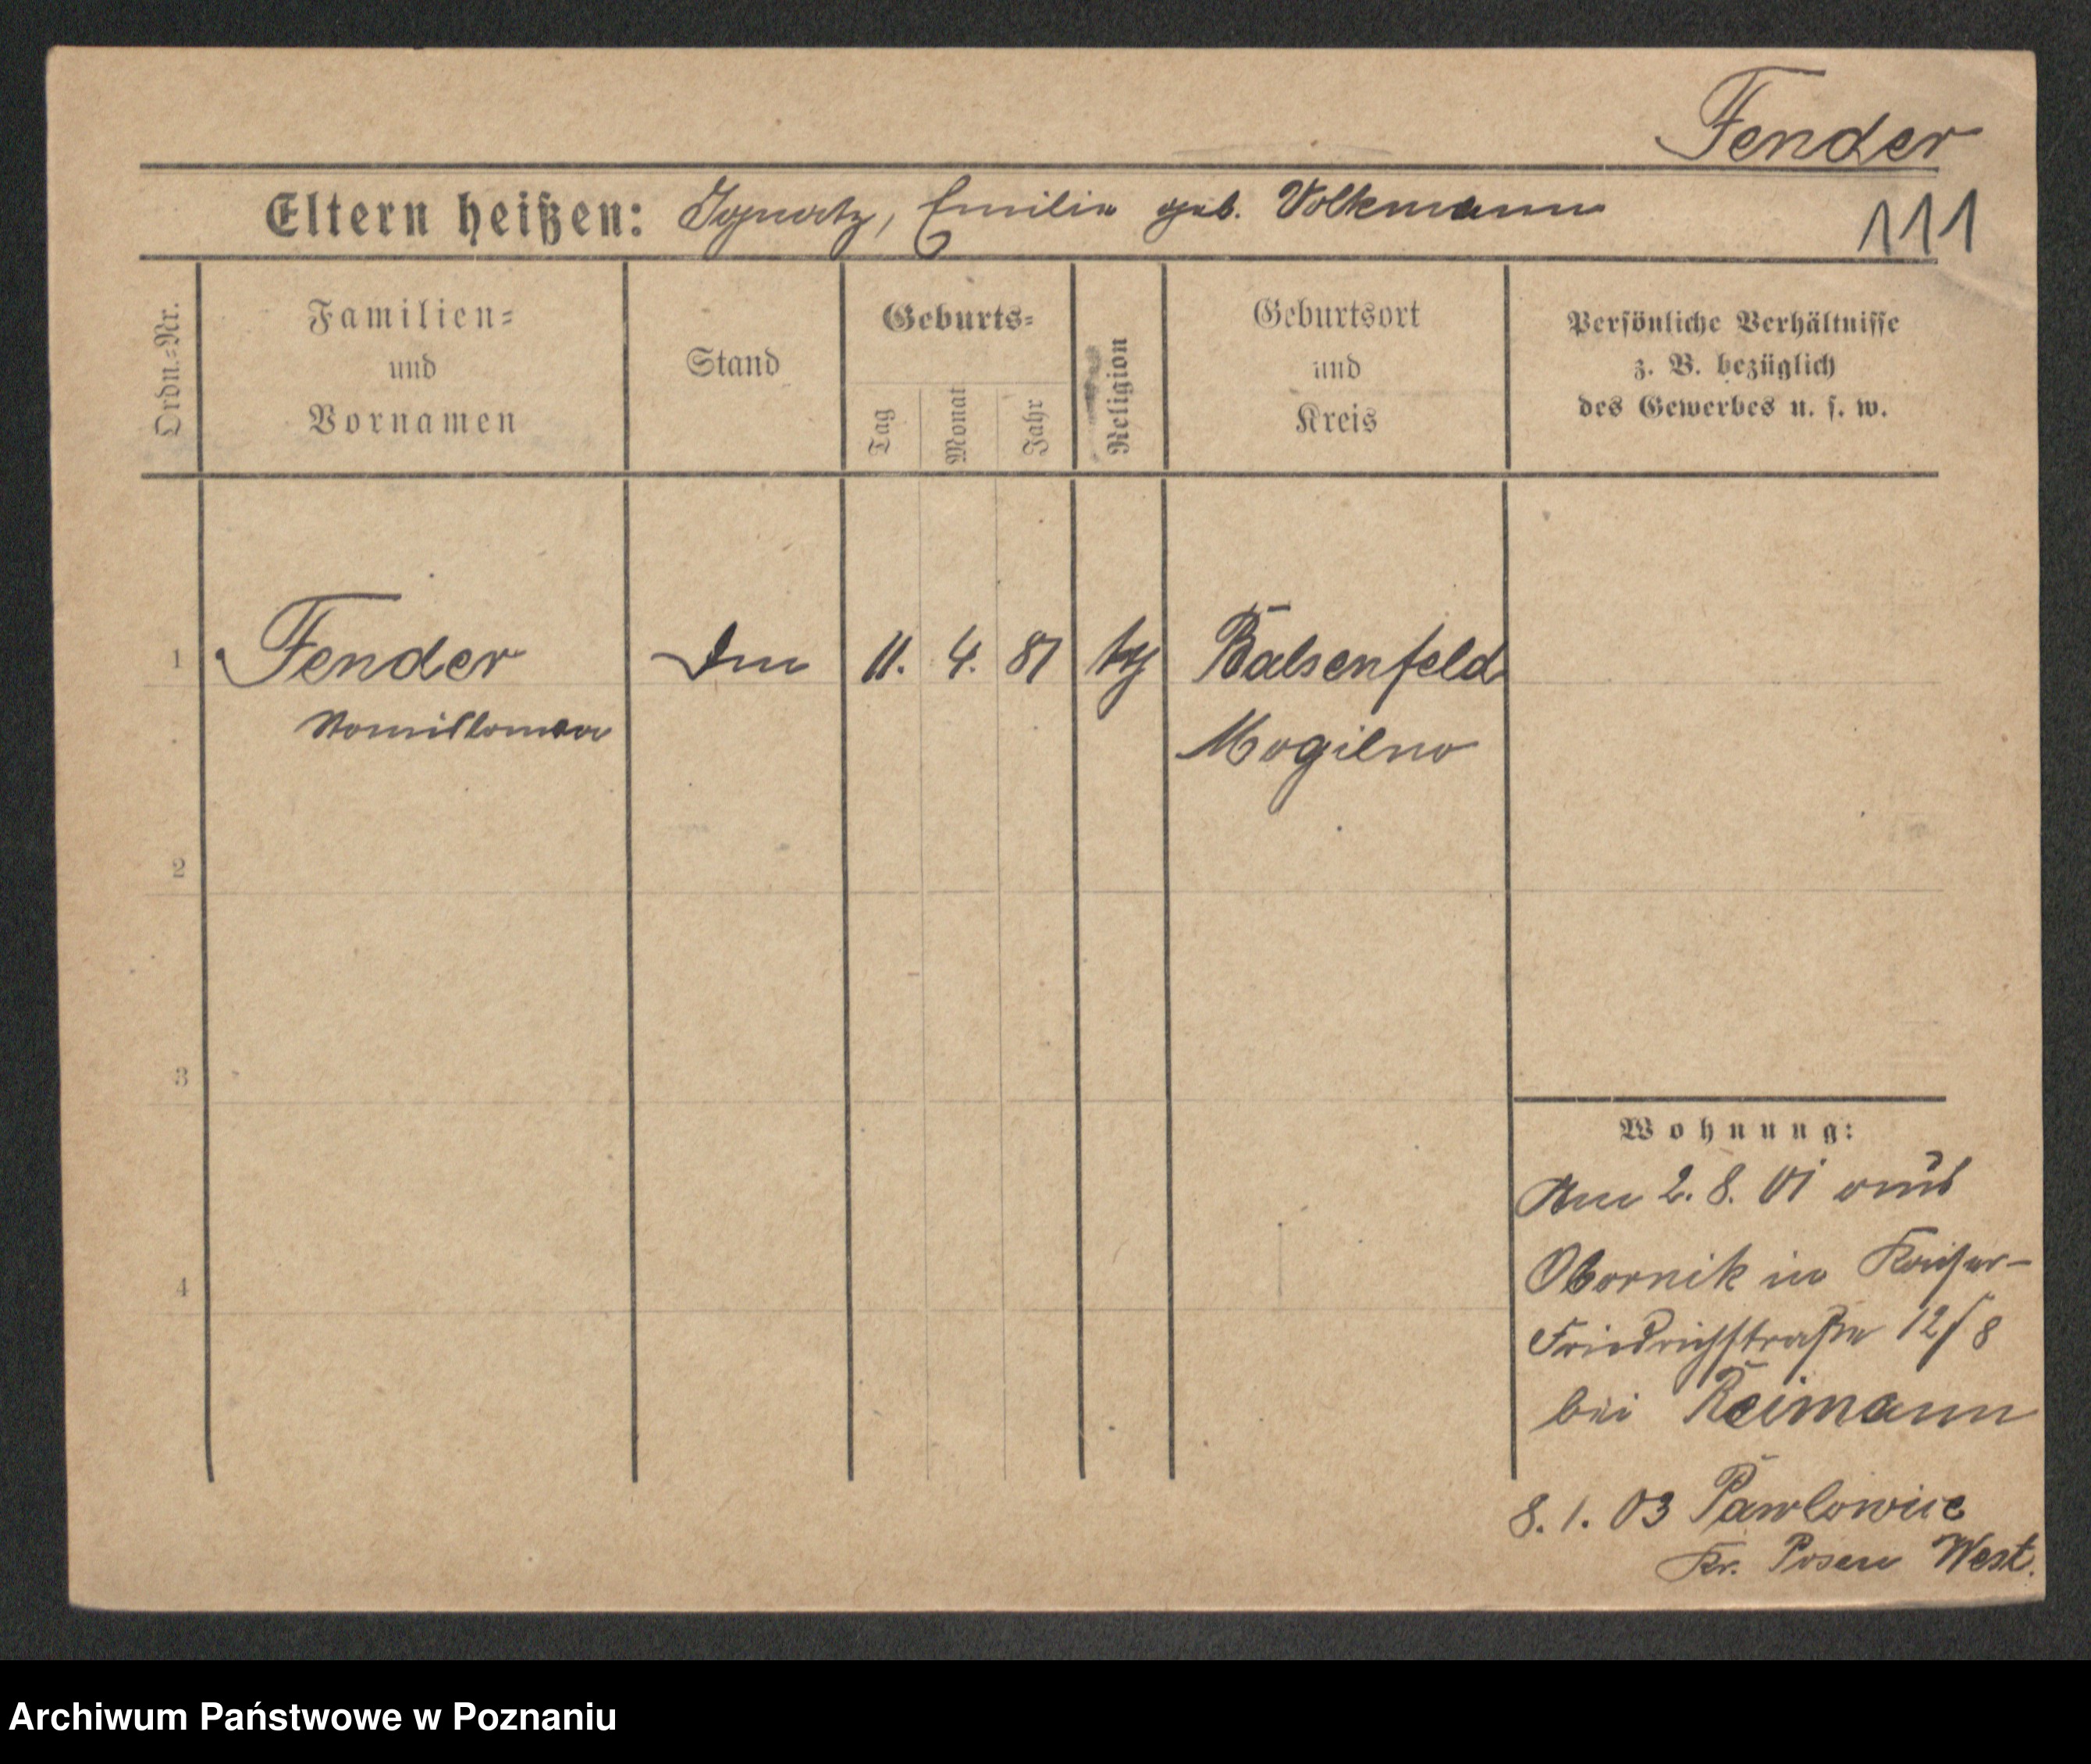 Fender
Eltern heißen: Ignatz, Emilie geb. Volkmann
111
Ordn.=Nr.
Familien=
und
Vornamen
Stand
Geburts=
Tag
Monat
Jahr
Religion
Geburtsort
und
Kreis
Persönliche Verhältnisse
z. B. bezüglich
des Gewerbes u. s. w.
1 Fender 11. 4. 81 Balsenfeld
Mogilno
2
3
4
Wohnung:
Am 2. 8. 01 aus
Obornik in Kaiser-
Friedrichstraße 12/8
bei Reimann
8. 1. 03 Pawlowice
Kr. Posen West.
Archiwum Państwowe w Poznaniu